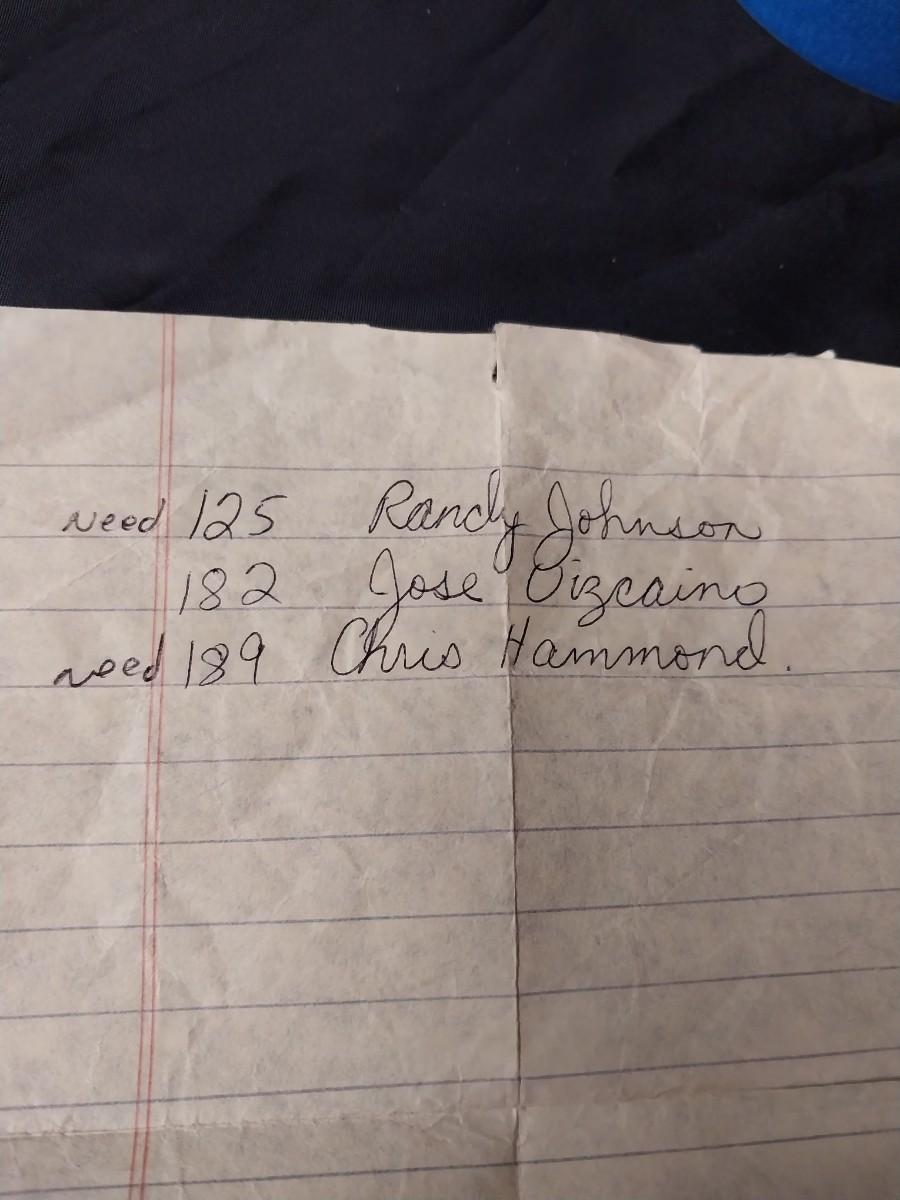 Need 125 Randy Johnson
182 Jose Vizcaino
need 189 Chris Hammond.